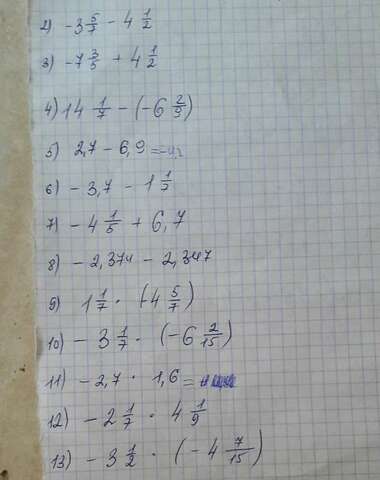 2) -3 5/7 - 4 1/2
3) -7 3/5 + 4 1/2
4) 14 1/7 - (-6 2/9)
5) 2,7 - 6,9 = -4,2
6) - 3,7 - 1 1/2
7) - 4 1/5 + 6,7
8) - 2,374 - 2,347
9) 1 1/7 · (-4 5/7)
10) - 3 1/7 · (-6 2/15)
11) - 2,7 · 1,6 =
12) - 2 1/7 · 4 1/9
13) - 3 1/2 · (-4 7/15)